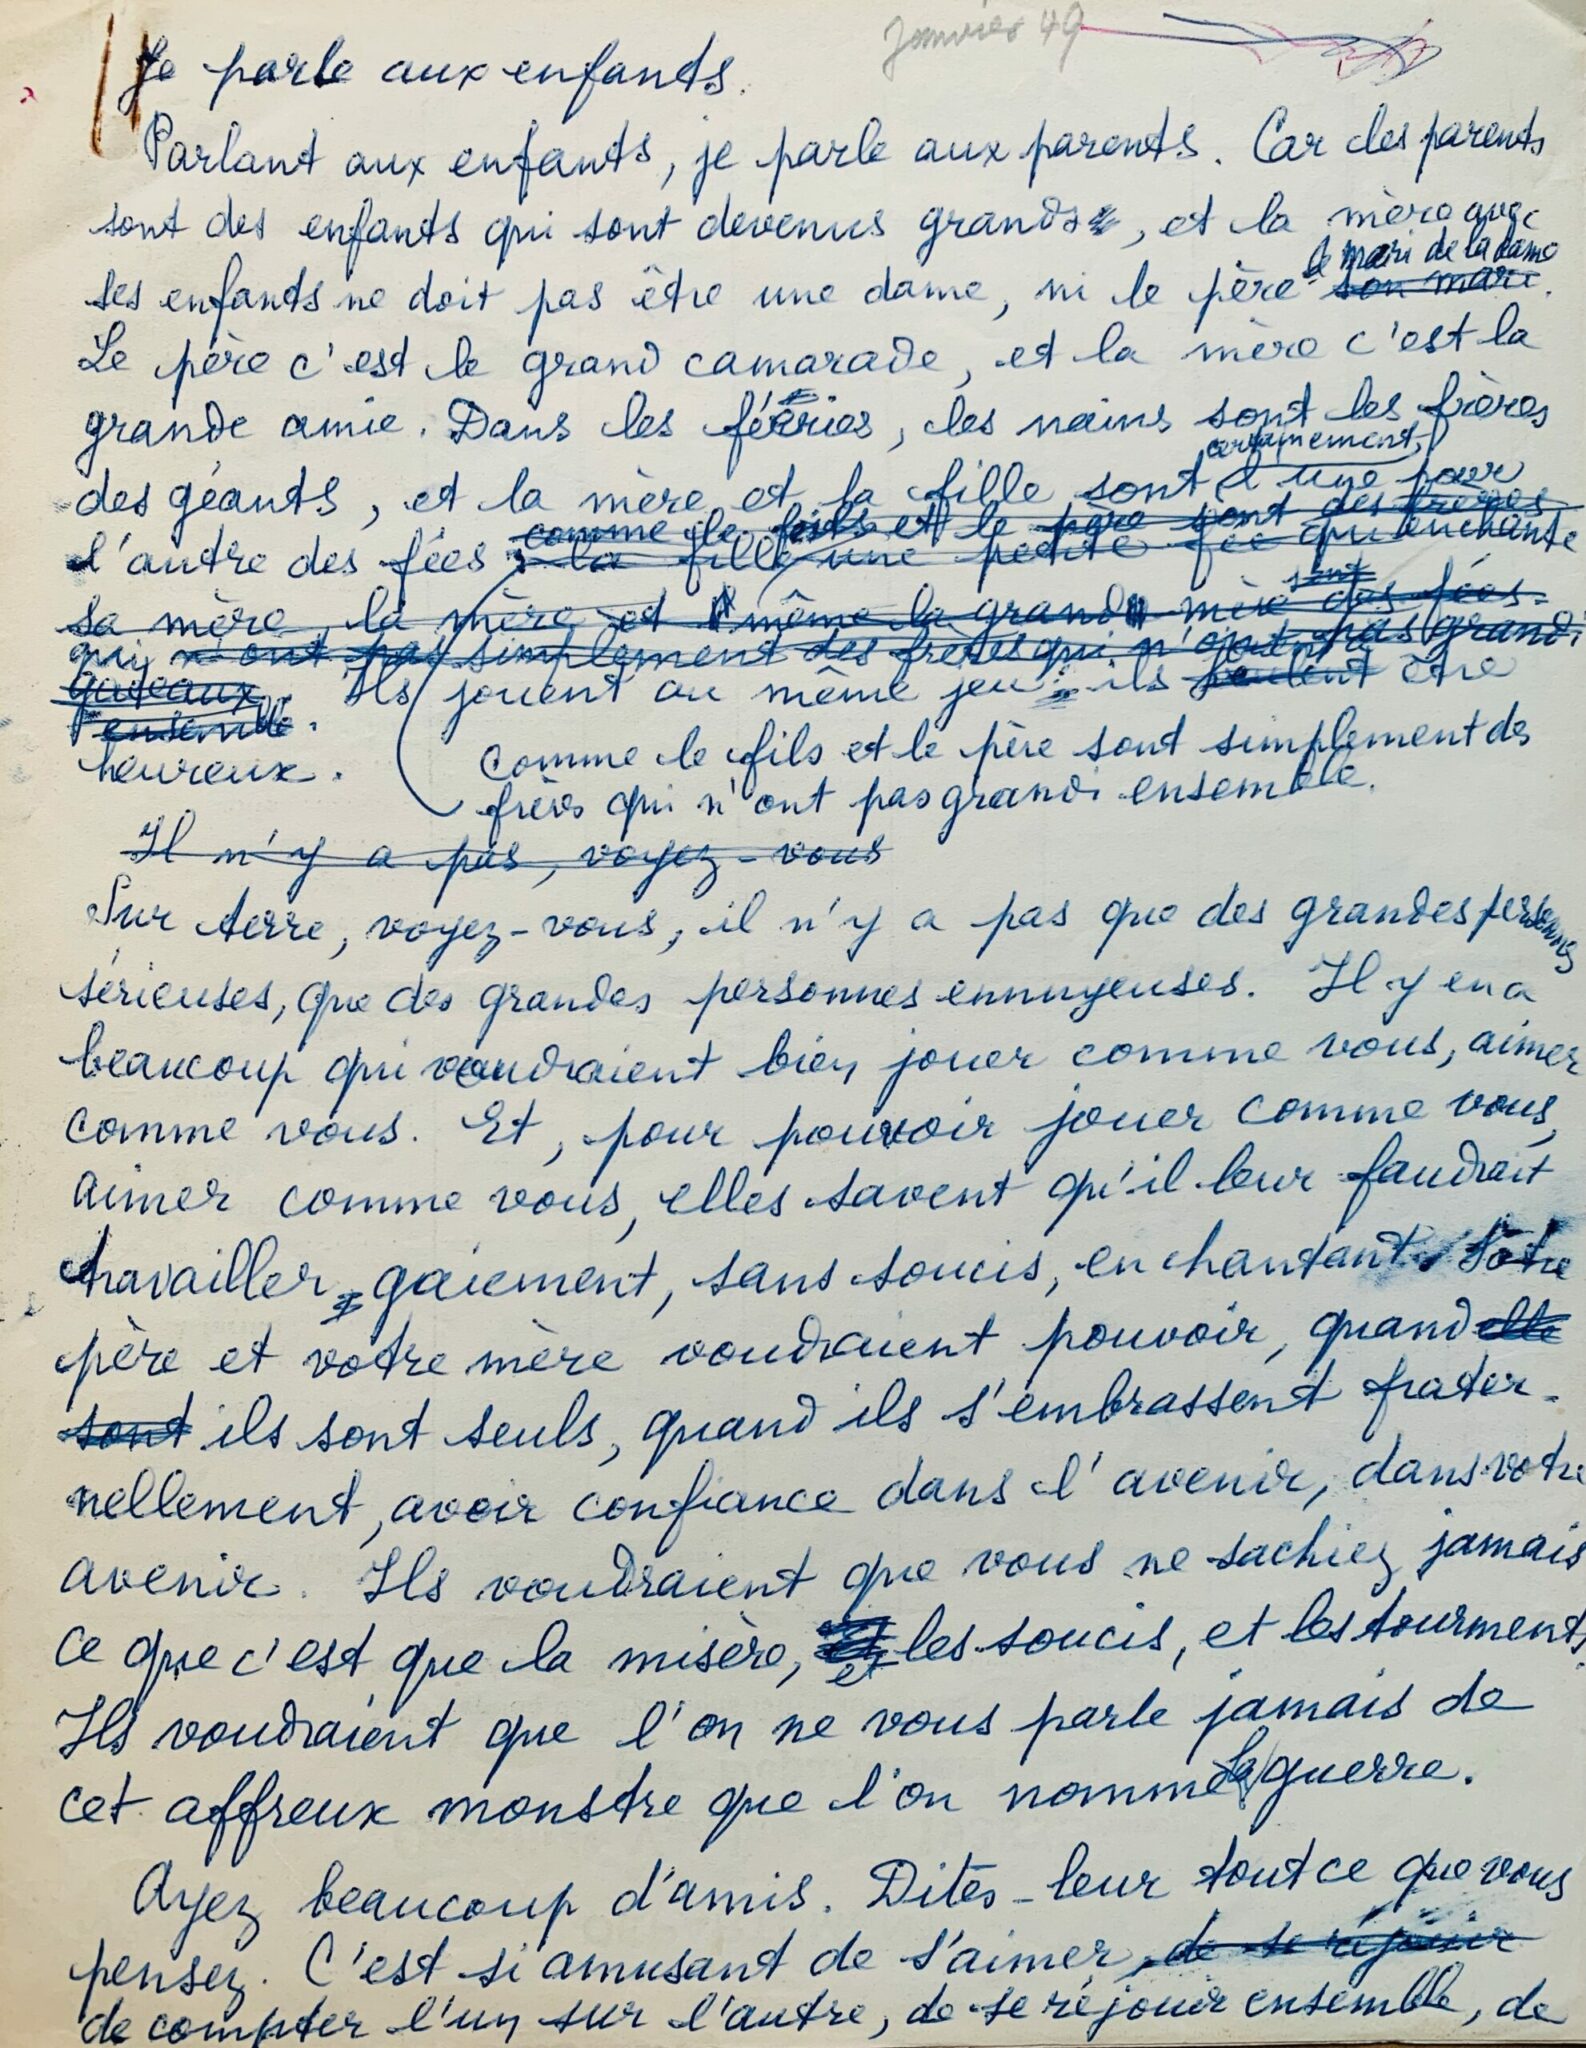 Janvier 49
Je parle aux enfants.
Parlant aux enfants, je parle aux parents. Car les parents
sont des enfants qui sont devenus grands, et la mère avec
le mari de la dame
ses enfants ne doit pas être une dame, ni le père son mari.
Le père c'est le grand camarade, et la mère c'est la
grande amie. Dans les féeries, les nains sont les frères
certainement,
des géants, et la mère et la fille sont l'une pour
comme le fils et le père sont des frères
l'autre des fées : la fille une petite fée qui enchante
sa mère, la mère et même la grand mère sont des fées.
qui n'ont pas simplement des frères qui n'ont pas grandi
gateaux. Ils jouent au même jeu : ils veulent être
ensemble.
heureux.
comme le fils et le père sont simplement des
frères qui n'ont pas grandi ensemble.
Il n'y a pas, voyez-vous
Sur terre, voyez-vous, il n'y a pas que des grandes personnes
sérieuses, que des grandes personnes ennuyeuses. Il y en a
beaucoup qui voudraient bien jouer comme vous, aimer
comme vous. Et, pour pouvoir jouer comme vous,
aimer comme vous, elles savent qu'il leur faudrait
travailler gaiement, sans soucis, en chantant. Votre
père et votre mère voudraient pouvoir, quand elle
sont ils sont seuls, quand ils s'embrassent frater-
nellement, avoir confiance dans l'avenir, dans votre
avenir. Ils voudraient que vous ne sachiez jamais
ce que c'est que la misère, et les soucis, et les tourments.
Ils voudraient que l'on ne vous parle jamais de
cet affreux monstre que l'on nomme la guerre.
Ayez beaucoup d'amis. Dites-leur tout ce que vous
pensez. C'est si amusant de s'aimer, de se réjouir
de compter l'un sur l'autre, de se réjouir ensemble, de